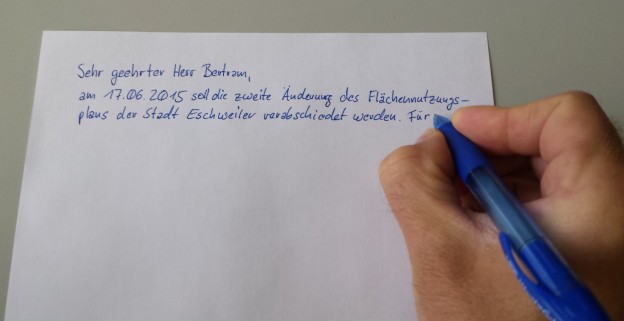 Sehr geehrter Herr Bertram,
am 17.06.2015 soll die zweite Änderung des Flächennutzungs-
plans der Stadt Eschweiler verabschiedet werden. Für